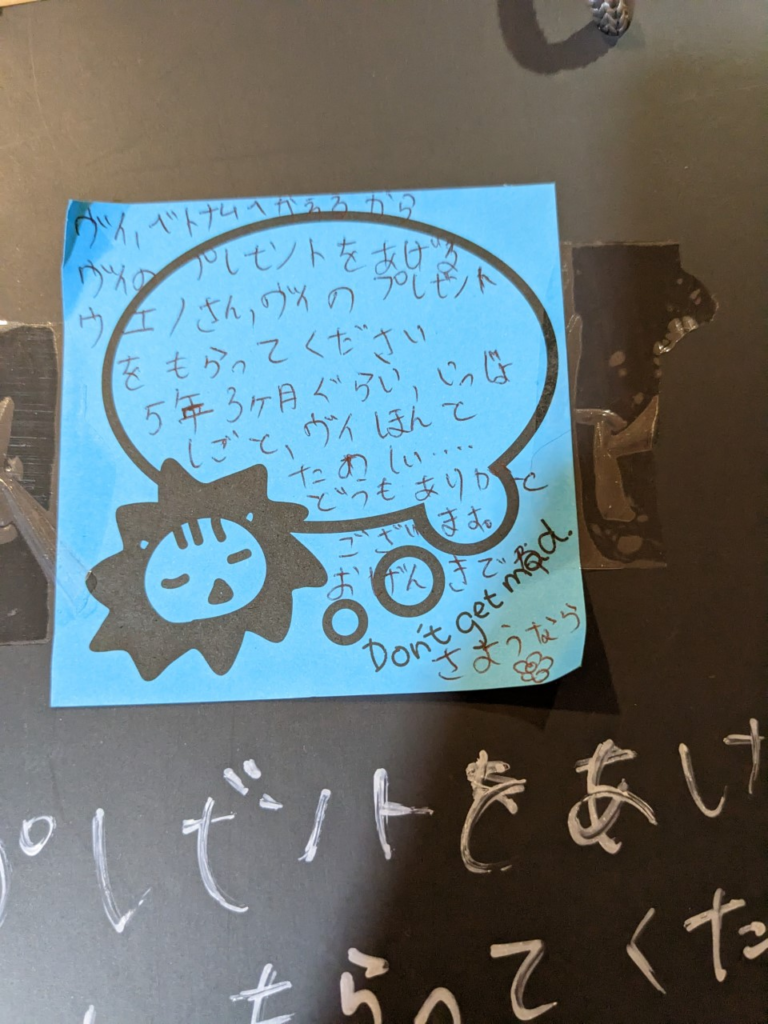 ヴィ,ベトナムへかえるから
ヴィの プレゼントをあげる
ウエノさん,ヴィの プレゼント
をもらってください
5年3ケ月ぐらい,いっぱ
しごと、ヴィほんと
たのしい....
どうもありがと
ございます。
おげんきで
Don't get mad.
さようなら
プレゼントをあげ
もらってくた